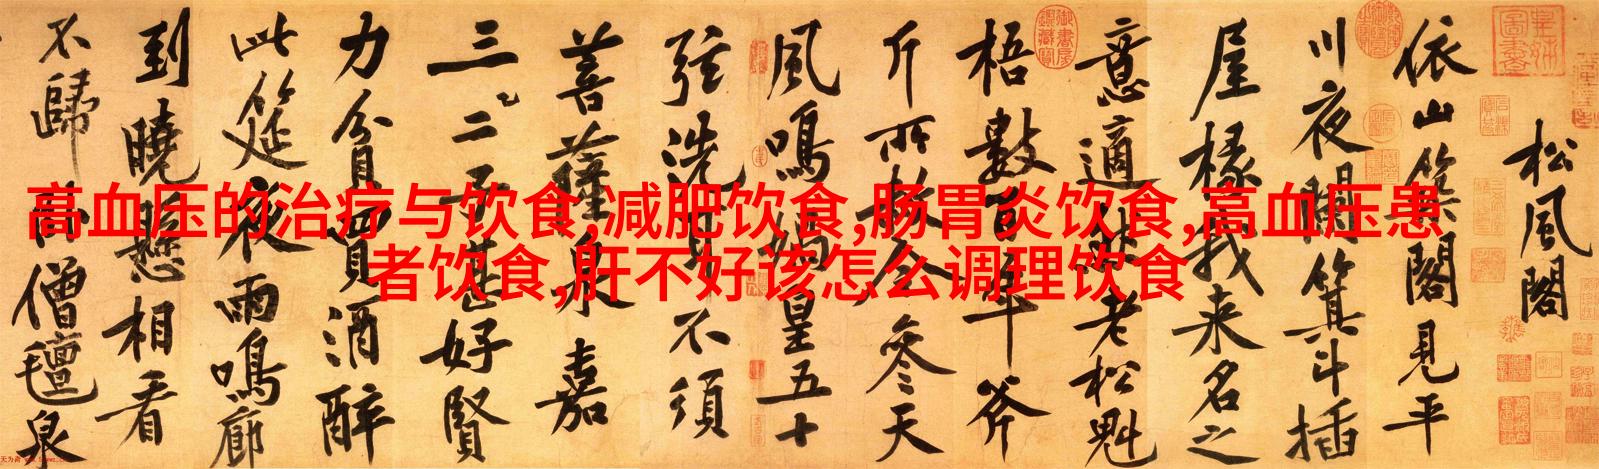 高血压的治疗与饮食,减肥饮食,肠胃炎饮食,高血压患
者饮食,肝不好该怎么调理饮食
松風閣
依山築閣見平
川夜闌箕斗插
屋椽我来名之
意適然老松魁
梧數百年斧
斤所赦今參天
風鳴媧皇五十
弦洗耳不須
菩薩泉嘉
三二子甚好賢
力貧買酒醉
此筵夜雨鳴廊
到曉懸相看
不歸卧僧氊泉